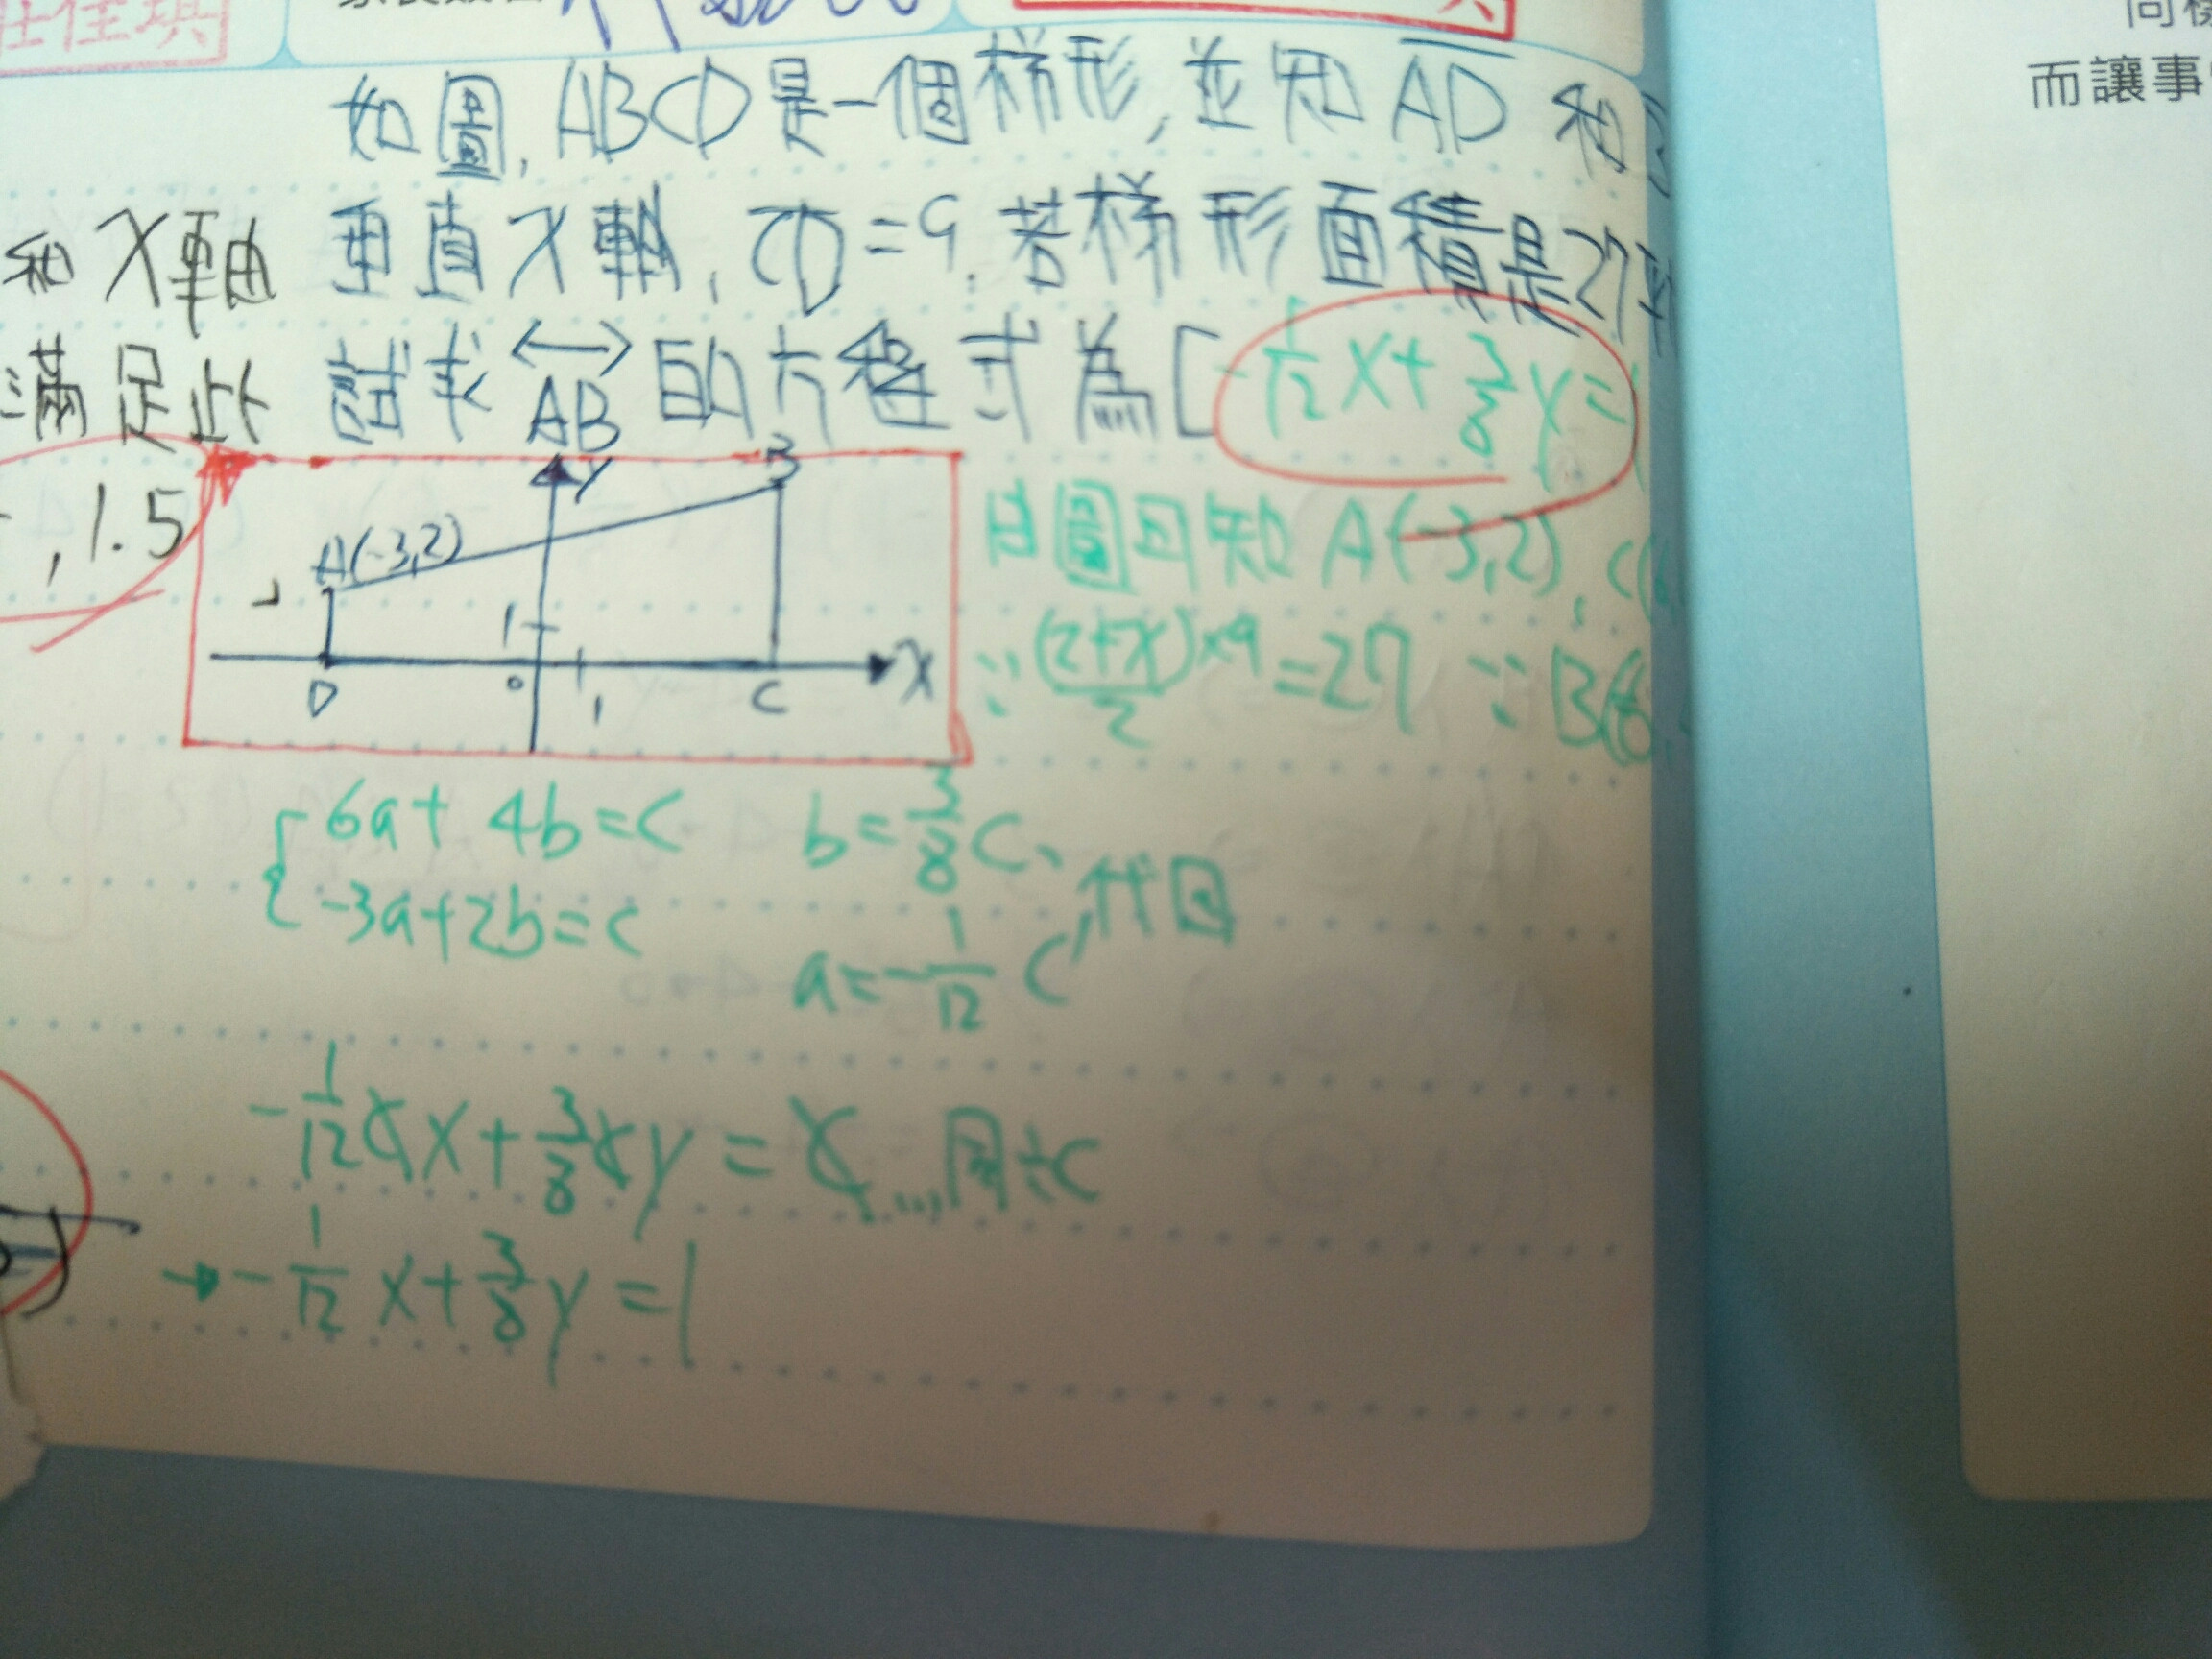 如圖, ABCD是一個梯形, 並知 AD 和
和 X軸 垂直X軸, CD=9. 若梯形面積是27
滿足此 試求 AB 的方程式為[-1/12 x+3/8 y=
, 1.5
y
B
A(-3,2)
1
x
D
0
1
C
由圖可知 A(-3,2), C(
∵ (2+x)×9/2 =27 ∵ B(6,
6a+ 4b=c
-3a+2b=c
b=3/8 c、
a=-1/12 c, 代回
-1/12 cx+3/8 cy=c...,同÷c
→-1/12 x+3/8 y=1
而讓事